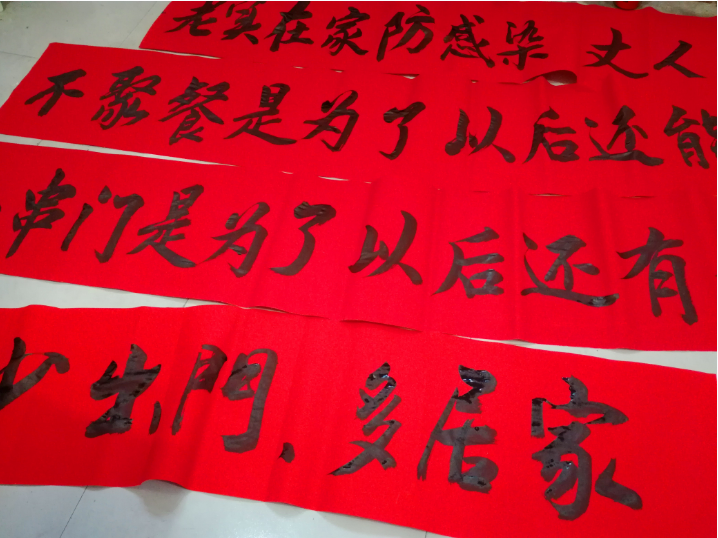 老实在家防感染 丈人
不聚餐是为了以后还能
串门是为了以后还有
少出門、多居家